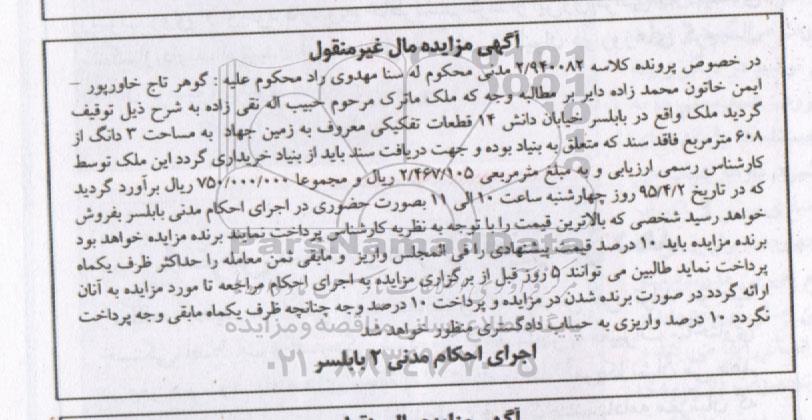 آگهی مزایده مال غیرمنقول
در خصوص پرونده کلاسه ۲/۹۴۰۰۸۲ مدنی محکوم له سنا مهدوی راد محکوم علیه - گوهر تاج خاورپور -
ایمن خاتون محمد زاده دایر بر مطالبه وجه که ملک ماترک مرحوم حبیب اله نقی زاده به شرح ذیل توقیف
گردید ملک واقع در بابلسر خیابان دانش ۱۴ قطعات تفکیکی معروف به زمین جهاد به مساحت ۳ دانگ از
۶۰۸ مترمربع فاقد سند که متعلق به بنیاد بوده و جهت دریافت سند باید از بنیاد خریداری گردد این ملک توسط
کارشناس رسمی ارزیابی و به مبلغ مترمربعی ۲/۴۶۷/۱۰۵ ریال و مجموعا ۷۵۰/۰۰۰/۰۰۰ ریال برآورد گردید
که در تاریخ ۹۵/۴/۲ روز چهارشنبه ساعت ۱۰ الی ۱۱ بصورت حضوری در اجرای احکام مدنی بابلسر بفروش
خواهد رسید شخصی که بالاترین قیمت را با توجه به نظریه کارشناس پرداخت نماید برنده مزایده خواهد بود
برنده مزایده باید ۱۰ درصد قیمت پیشنهادی را فی المجلس واریز و مابقی ثمن معامله را حداکثر ظرف یکماه
پرداخت نماید طالبین می توانند ۵ روز قبل از برگزاری مزایده به اجرای احکام مراجعه تا مورد مزایده به آنان
ارائه گردد در صورت برنده شدن در مزایده و پرداخت ۱۰ درصد وجه چنانچه ظرف یکماه مابقی وجه پرداخت
نگردد ۱۰ درصد واریزی به حساب دادگستری منظور خواهد شد
اجرای احکام مدنی ۲ بابلسر
ParsNamadData
پایگاه اطلاع رسانی مناقصه و مزایده
۰۲۱-۸۸۳۴۹۶۷۰-۵